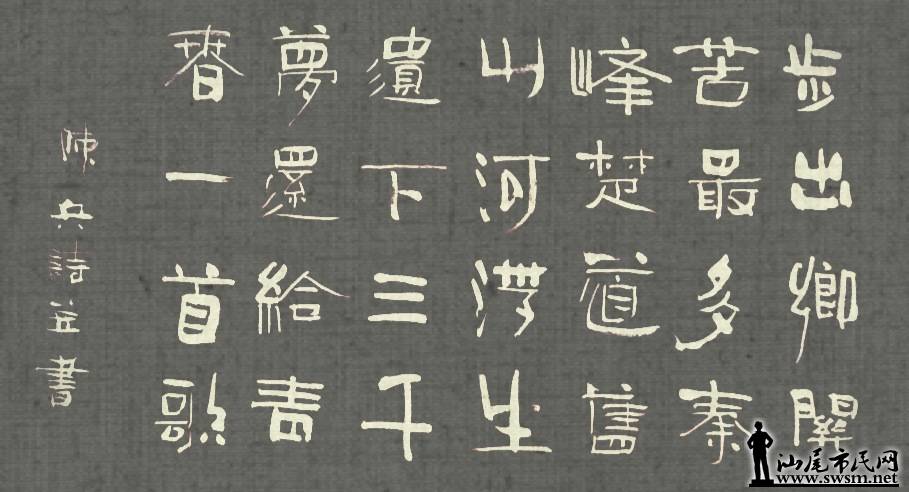 步出鄉關
苦最多秦
峰楚道舊
山河浮生
遺下三千
夢還給青
春一首歌
陳兵詩並書
汕尾市民网
www.swsm.net